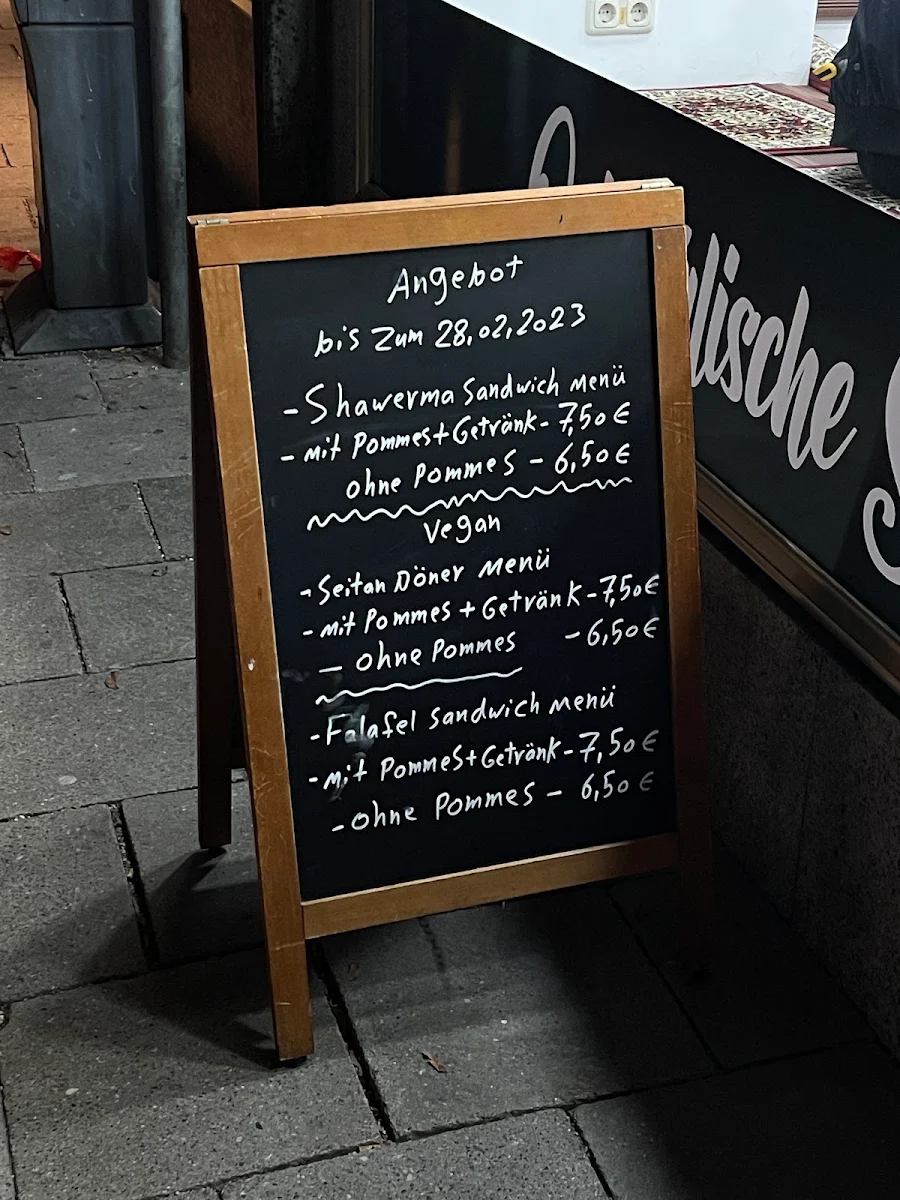 Angebot
bis Zum 28,02,2023
- Shawerma Sandwich menü
- mit Pommes + Getränk - 7,50 €
ohne Pommes - 6,50 €
Vegan
- Seitan Döner menü
- mit Pommes + Getränk - 7,50 €
- ohne Pommes - 6,50 €
- Falafel Sandwich menü
- mit Pommes + Getränk - 7,50 €
- ohne Pommes - 6,50 €